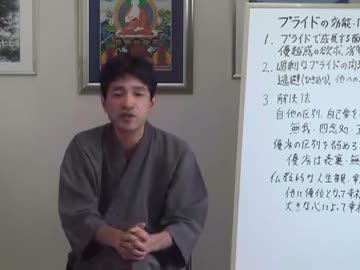 プライドの効能・
1. プライドで成長する面
優越感の欲求、
2. 過剰なプライドの問
逃避(ひきこもり)、他への
3. 解決法
自他の区別、自己愛を
無我・四念処・
優劣の区別を弱める
優劣は表裏・無
仏教的な人生観・幸
他に優位となって幸
大きな心によって幸